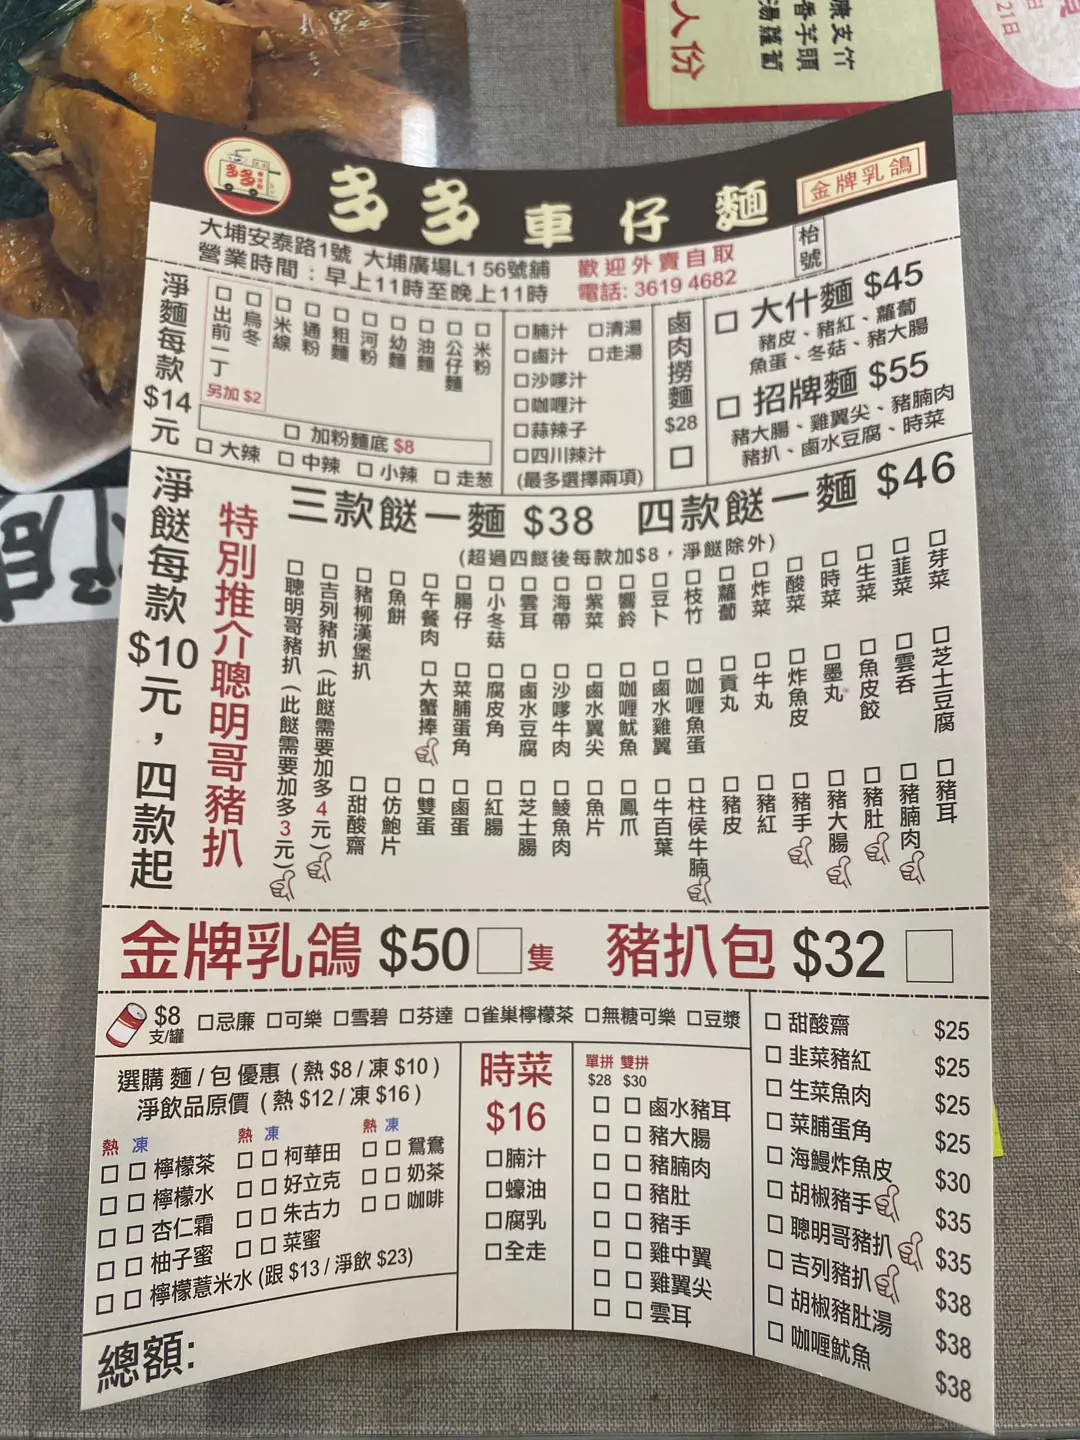 人份
湯蘿蔔
香芋頭
支竹
21日
多多
多多車仔麵
金牌乳鴿
大埔安泰路1號 大埔廣場L1 56號舖
營業時間：早上11時至晚上11時
歡迎外賣自取
電話: 3619 4682
枱號
淨麵每款$14元
□出前一丁
□烏冬
另加 $2
□米線
□通粉
□粗麵
□河粉
□幼麵
□油麵
□公仔麵
□米粉
□ 加粉麵底 $8
□ 大辣 □ 中辣 □ 小辣 □ 走葱
□腩汁 □清湯
□鹵汁 □走湯
□沙嗲汁
□咖喱汁
□蒜辣子
□四川辣汁
(最多選擇兩項)
鹵肉撈麵
$28
□
□ 大什麵 $45
豬皮、豬紅、蘿蔔
魚蛋、冬菇、豬大腸
□ 招牌麵 $55
豬大腸、雞翼尖、豬腩肉
豬扒、鹵水豆腐、時菜
淨餸每款$10元，四款起
特別推介聰明哥豬扒
三款餸一麵 $38 四款餸一麵 $46
(超過四餸後每款加$8，淨餸除外)
□聰明哥豬扒（此餸需要加多3元）
□吉列豬扒（此餸需要加多4元）
□豬柳漢堡扒
□魚餅
□午餐肉
□腸仔
□小冬菇
□雲耳
□海帶
□紫菜
□響鈴
□豆卜
□枝竹
□蘿蔔
□炸菜
□酸菜
□時菜
□生菜
□韮菜
□芽菜
□大蟹捧
□菜脯蛋角
□腐皮角
□鹵水豆腐
□沙嗲牛肉
□鹵水翼尖
□咖喱魷魚
□鹵水雞翼
□咖喱魚蛋
□貢丸
□牛丸
□炸魚皮
□墨丸
□魚皮餃
□雲吞
□芝士豆腐
□甜酸齋
□仿鮑片
□雙蛋
□鹵蛋
□紅腸
□芝士腸
□鯪魚肉
□魚片
□鳳爪
□牛百葉
□柱侯牛腩
□豬皮
□豬紅
□豬手
□豬大腸
□豬肚
□豬腩肉
□豬耳
金牌乳鴿 $50 □隻 豬扒包 $32 □
$8
支/罐
□忌廉 □可樂 □雪碧 □芬達 □雀巢檸檬茶 □無糖可樂 □豆漿
選購 麵 / 包 優惠 ( 熱 $8 / 凍 $10 )
淨飲品原價 ( 熱 $12 / 凍 $16 )
熱 凍 熱 凍 熱 凍
□ □ 檸檬茶 □ □ 柯華田 □ □ 鴛鴦
□ □ 檸檬水 □ □ 好立克 □ □ 奶茶
□ □ 杏仁霜 □ □ 朱古力 □ □ 咖啡
□ □ 柚子蜜 □ □ 菜蜜
□ □ 檸檬薏米水 (跟 $13 / 淨飲 $23)
總額:
時菜
$16
□腩汁
□蠔油
□腐乳
□全走
單拼 雙拼
$28 $30
□ □ 鹵水豬耳
□ □ 豬大腸
□ □ 豬腩肉
□ □ 豬肚
□ □ 豬手
□ □ 雞中翼
□ □ 雞翼尖
□ □ 雲耳
□ 甜酸齋 $25
□ 韭菜豬紅 $25
□ 生菜魚肉 $25
□ 菜脯蛋角 $25
□ 海鰻炸魚皮 $30
□ 胡椒豬手 $35
□ 聰明哥豬扒 $35
□ 吉列豬扒 $38
□ 胡椒豬肚湯 $38
□ 咖喱魷魚 $38